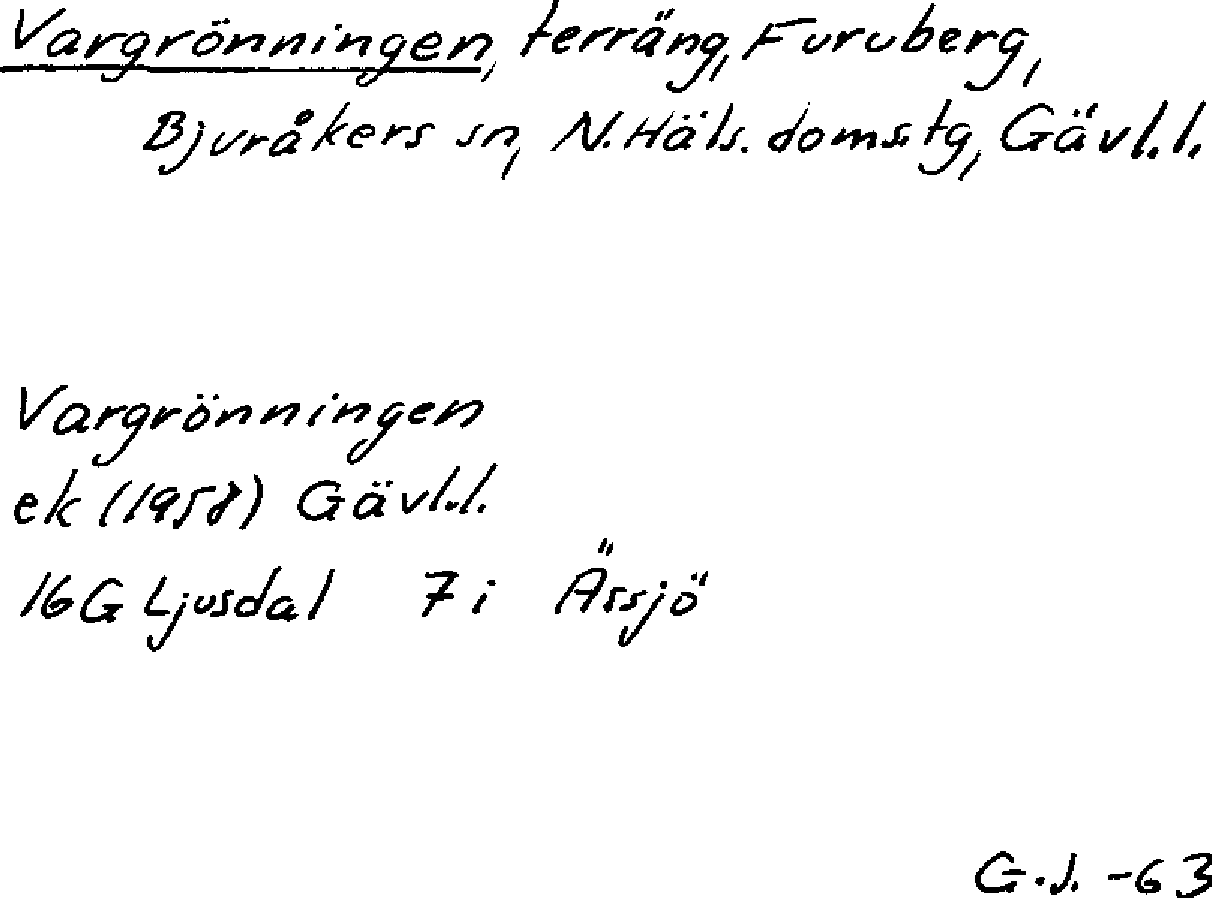 Vargrönningen, terräng, Furuberg,
Bjuråkers sn, N. Häls. doms.tg, Gävl.l.
Vargrönningen
ek (1958) Gävl.l.
16G Ljusdal 7i Ässjö
G.J. -63